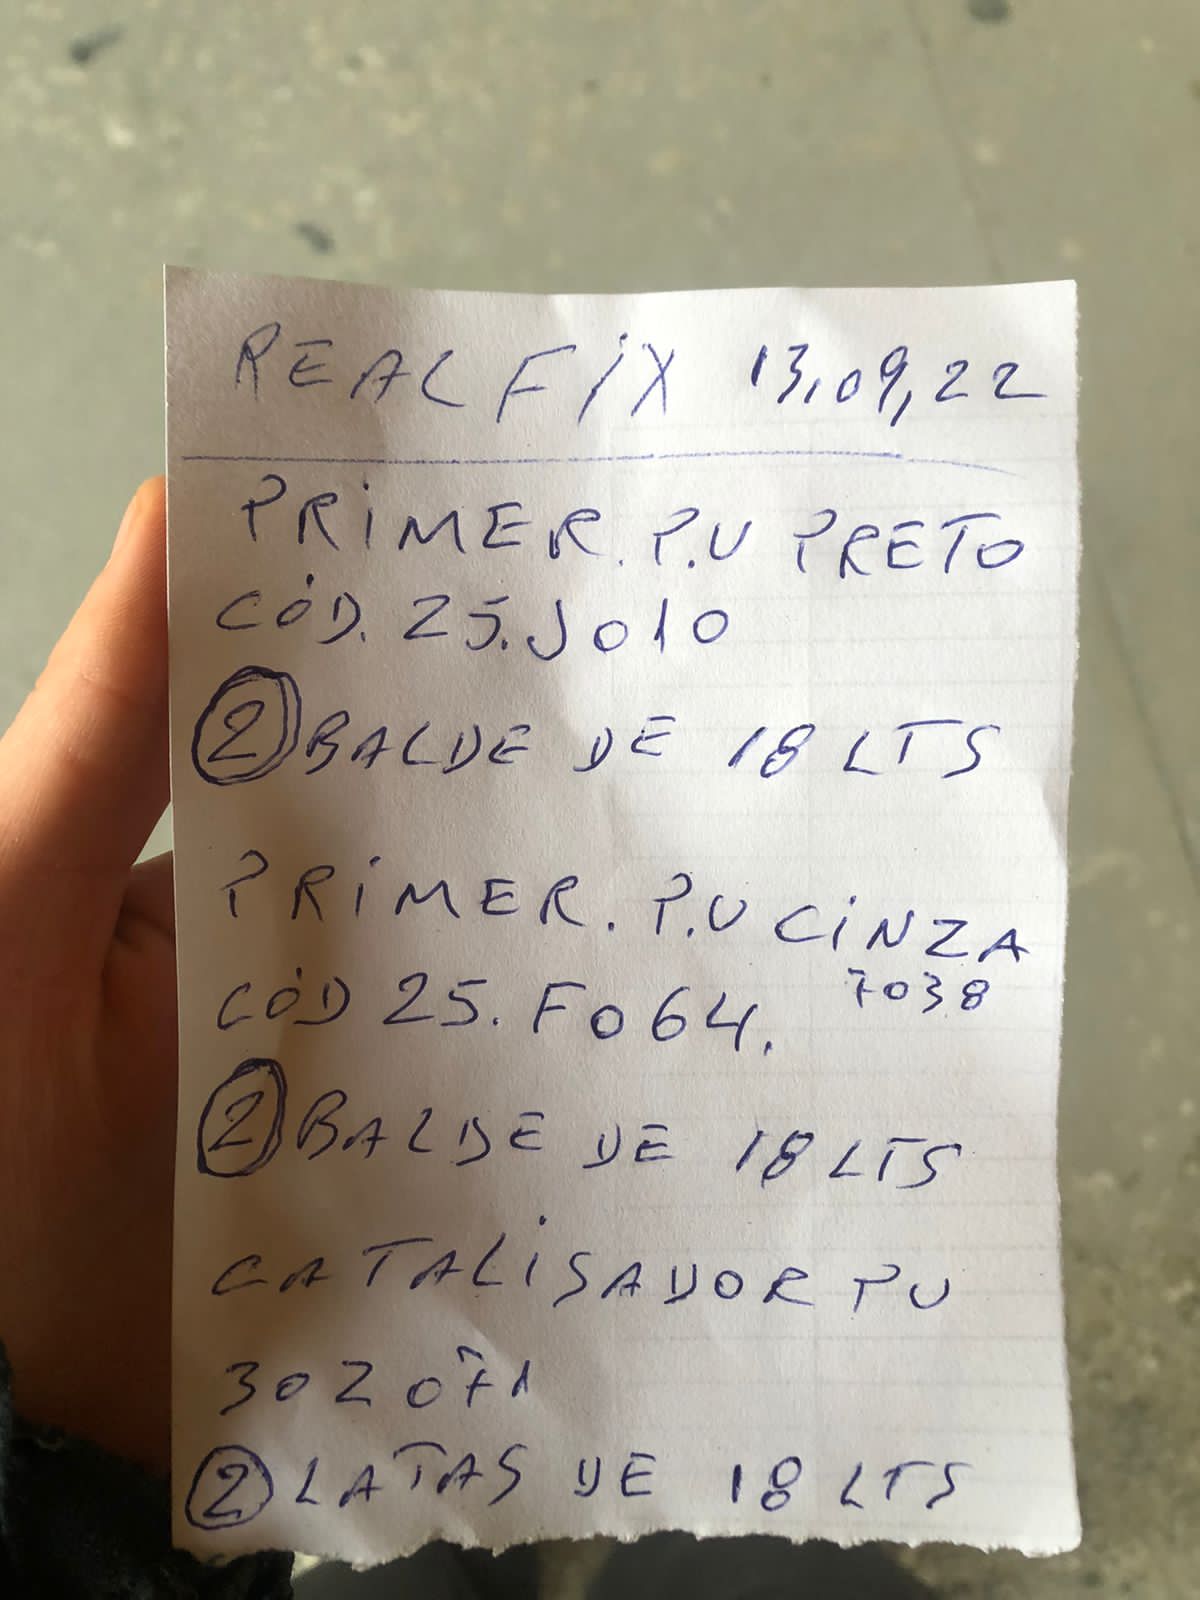 REALFIX 13,09,22
PRIMER. P.U PRETO
CÓD. 25.J010
2 BALDE DE 18 LTS
PRIMER. P.U CINZA
CÓD 25. F064. 7038
2 BALDE DE 18 LTS
CATALISADOR PU
302071
2 LATAS DE 18 LTS